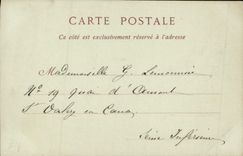 CARTE POSTALE
Ce côté est exclusivement réservé à l'adresse
Mademoiselle G. Lemonnier
N° 19 quai d'Amont
St Valery en Caux
Seine Inférieure